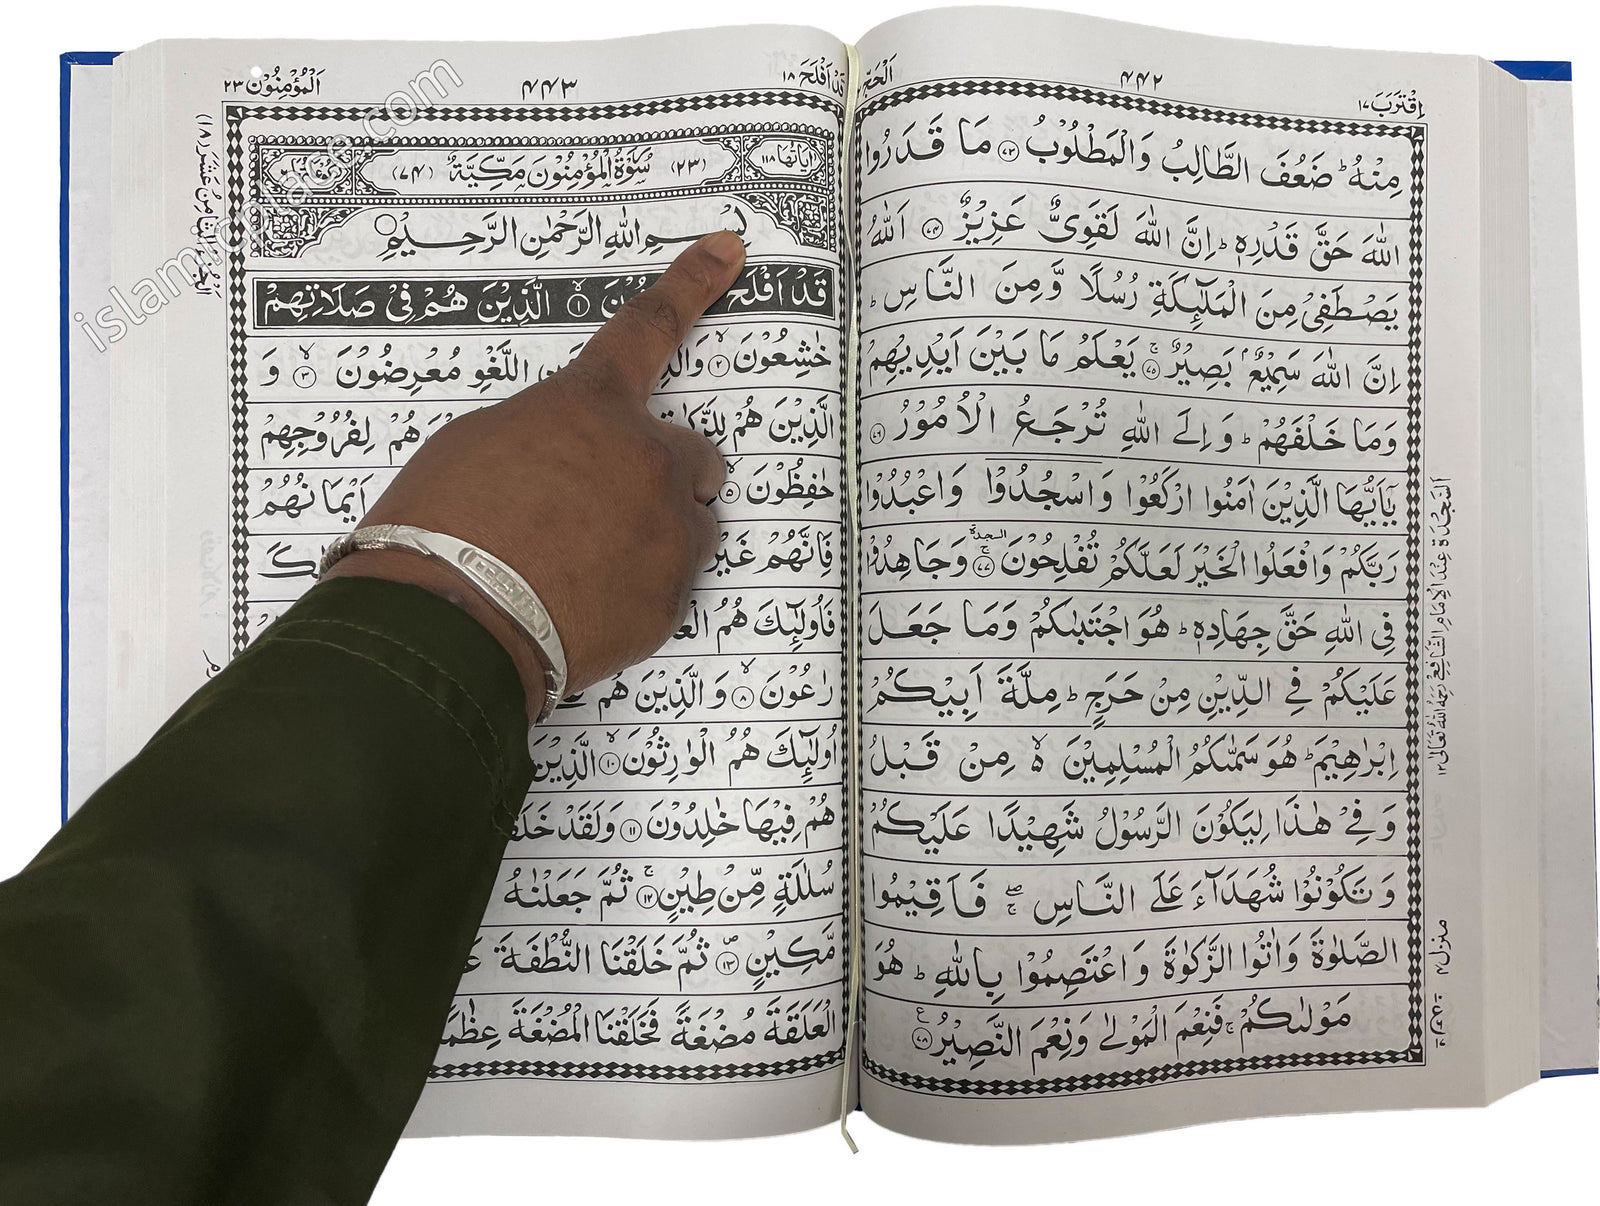 اِقْتَرَبَ ١٧
٤٤٢
اَلْحَجّ
مِنْهُ ؕ ضَعُفَ الطَّالِبُ وَالْمَطْلُوْبُ ﴿٧٣﴾ مَا قَدَرُوا
اللّٰهَ حَقَّ قَدْرِهٖ ؕ اِنَّ اللّٰهَ لَقَوِیٌّ عَزِیْزٌ ﴿٧٤﴾ اَللّٰهُ
یَصْطَفِیْ مِنَ الْمَلٰٓئِكَةِ رُسُلًا وَّمِنَ النَّاسِ ؕ
اِنَّ اللّٰهَ سَمِیْعٌۢ بَصِیْرٌ ﴿٧٥﴾ۚ یَعْلَمُ مَا بَیْنَ اَیْدِیْهِمْ
وَمَا خَلْفَهُمْ ؕ وَاِلَی اللّٰهِ تُرْجَعُ الْاُمُوْرُ ﴿٧٦﴾
یٰۤاَیُّهَا الَّذِیْنَ اٰمَنُوا ارْكَعُوْا وَاسْجُدُوْا وَاعْبُدُوْا
رَبَّكُمْ وَافْعَلُوا الْخَیْرَ لَعَلَّكُمْ تُفْلِحُوْنَ ﴿٧٧﴾ۚ السجدة وَجَاهِدُوْا
فِی اللّٰهِ حَقَّ جِهَادِهٖ ؕ هُوَ اجْتَبٰىكُمْ وَمَا جَعَلَ
عَلَیْكُمْ فِی الدِّیْنِ مِنْ حَرَجٍ ؕ مِلَّةَ اَبِیْكُمْ
اِبْرٰهِیْمَ ؕ هُوَ سَمّٰىكُمُ الْمُسْلِمِیْنَ ۙ۬ مِنْ قَبْلُ
وَفِیْ هٰذَا لِیَكُوْنَ الرَّسُوْلُ شَهِیْدًا عَلَیْكُمْ
وَتَكُوْنُوْا شُهَدَآءَ عَلَی النَّاسِ ۚۖ فَاَقِیْمُوا
الصَّلٰوةَ وَاٰتُوا الزَّكٰوةَ وَاعْتَصِمُوْا بِاللّٰهِ ؕ هُوَ
مَوْلٰىكُمْ ۚ فَنِعْمَ الْمَوْلٰی وَنِعْمَ النَّصِیْرُ ﴿٧٨﴾ ع
اَلسَّجْدَةُ عِنْدَ الْاِمَامِ الشَّافِعِیِّ رَحِمَهُ اللّٰهُ تَعَالٰی ١٢
منزل ٤
قَدْ اَفْلَحَ ١٨
٤٤٣
اَلْمُؤْمِنُوْن ٢٣
اٰیَاتُهَا ١١٨
(٢٣) سُوْرَةُ الْمُؤْمِنُوْنَ مَكِّیَّةٌ (٧٤)
بِسْمِ اللّٰهِ الرَّحْمٰنِ الرَّحِیْمِ
قَدْ اَفْلَحَ ﴿١﴾ۙ الَّذِیْنَ هُمْ فِیْ صَلَاتِهِمْ
خٰشِعُوْنَ ﴿٢﴾ۙ اللَّغْوِ مُعْرِضُوْنَ ﴿٣﴾ۙ وَ
الَّذِیْنَ هُمْ هُمْ لِفُرُوْجِهِمْ
حٰفِظُوْنَ ﴿٥﴾ۙ اَیْمَانُهُمْ
فَاِنَّهُمْ غَیْرُ
فَاُولٰٓئِكَ هُمُ
رٰعُوْنَ ﴿٨﴾ۙ وَالَّذِیْنَ هُمْ
اُولٰٓئِكَ هُمُ الْوٰرِثُوْنَ ﴿١٠﴾ۙ الَّذِیْنَ
هُمْ فِیْهَا خٰلِدُوْنَ ﴿١١﴾ وَلَقَدْ
سُلٰلَةٍ مِّنْ طِیْنٍ ﴿١٢﴾ۚ ثُمَّ جَعَلْنٰهُ
مَّكِیْنٍ ﴿١٣﴾۪ ثُمَّ خَلَقْنَا النُّطْفَةَ
الْعَلَقَةَ مُضْغَةً فَخَلَقْنَا الْمُضْغَةَ
islamicplace.com